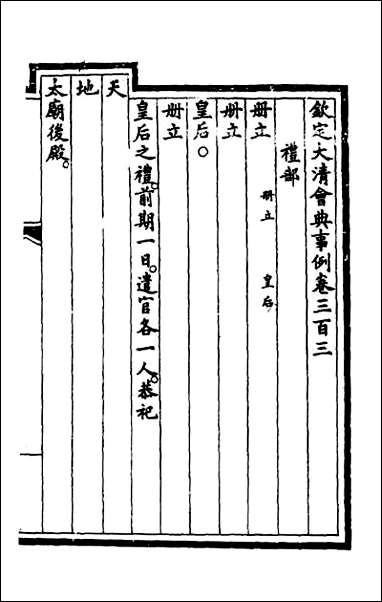 欽定大清會典事例卷三百三
禮部
冊立
冊立 皇后
冊立
皇后○
冊立
皇后之禮。前期一日。遣官各一人。恭祀
天
地
太廟後殿。